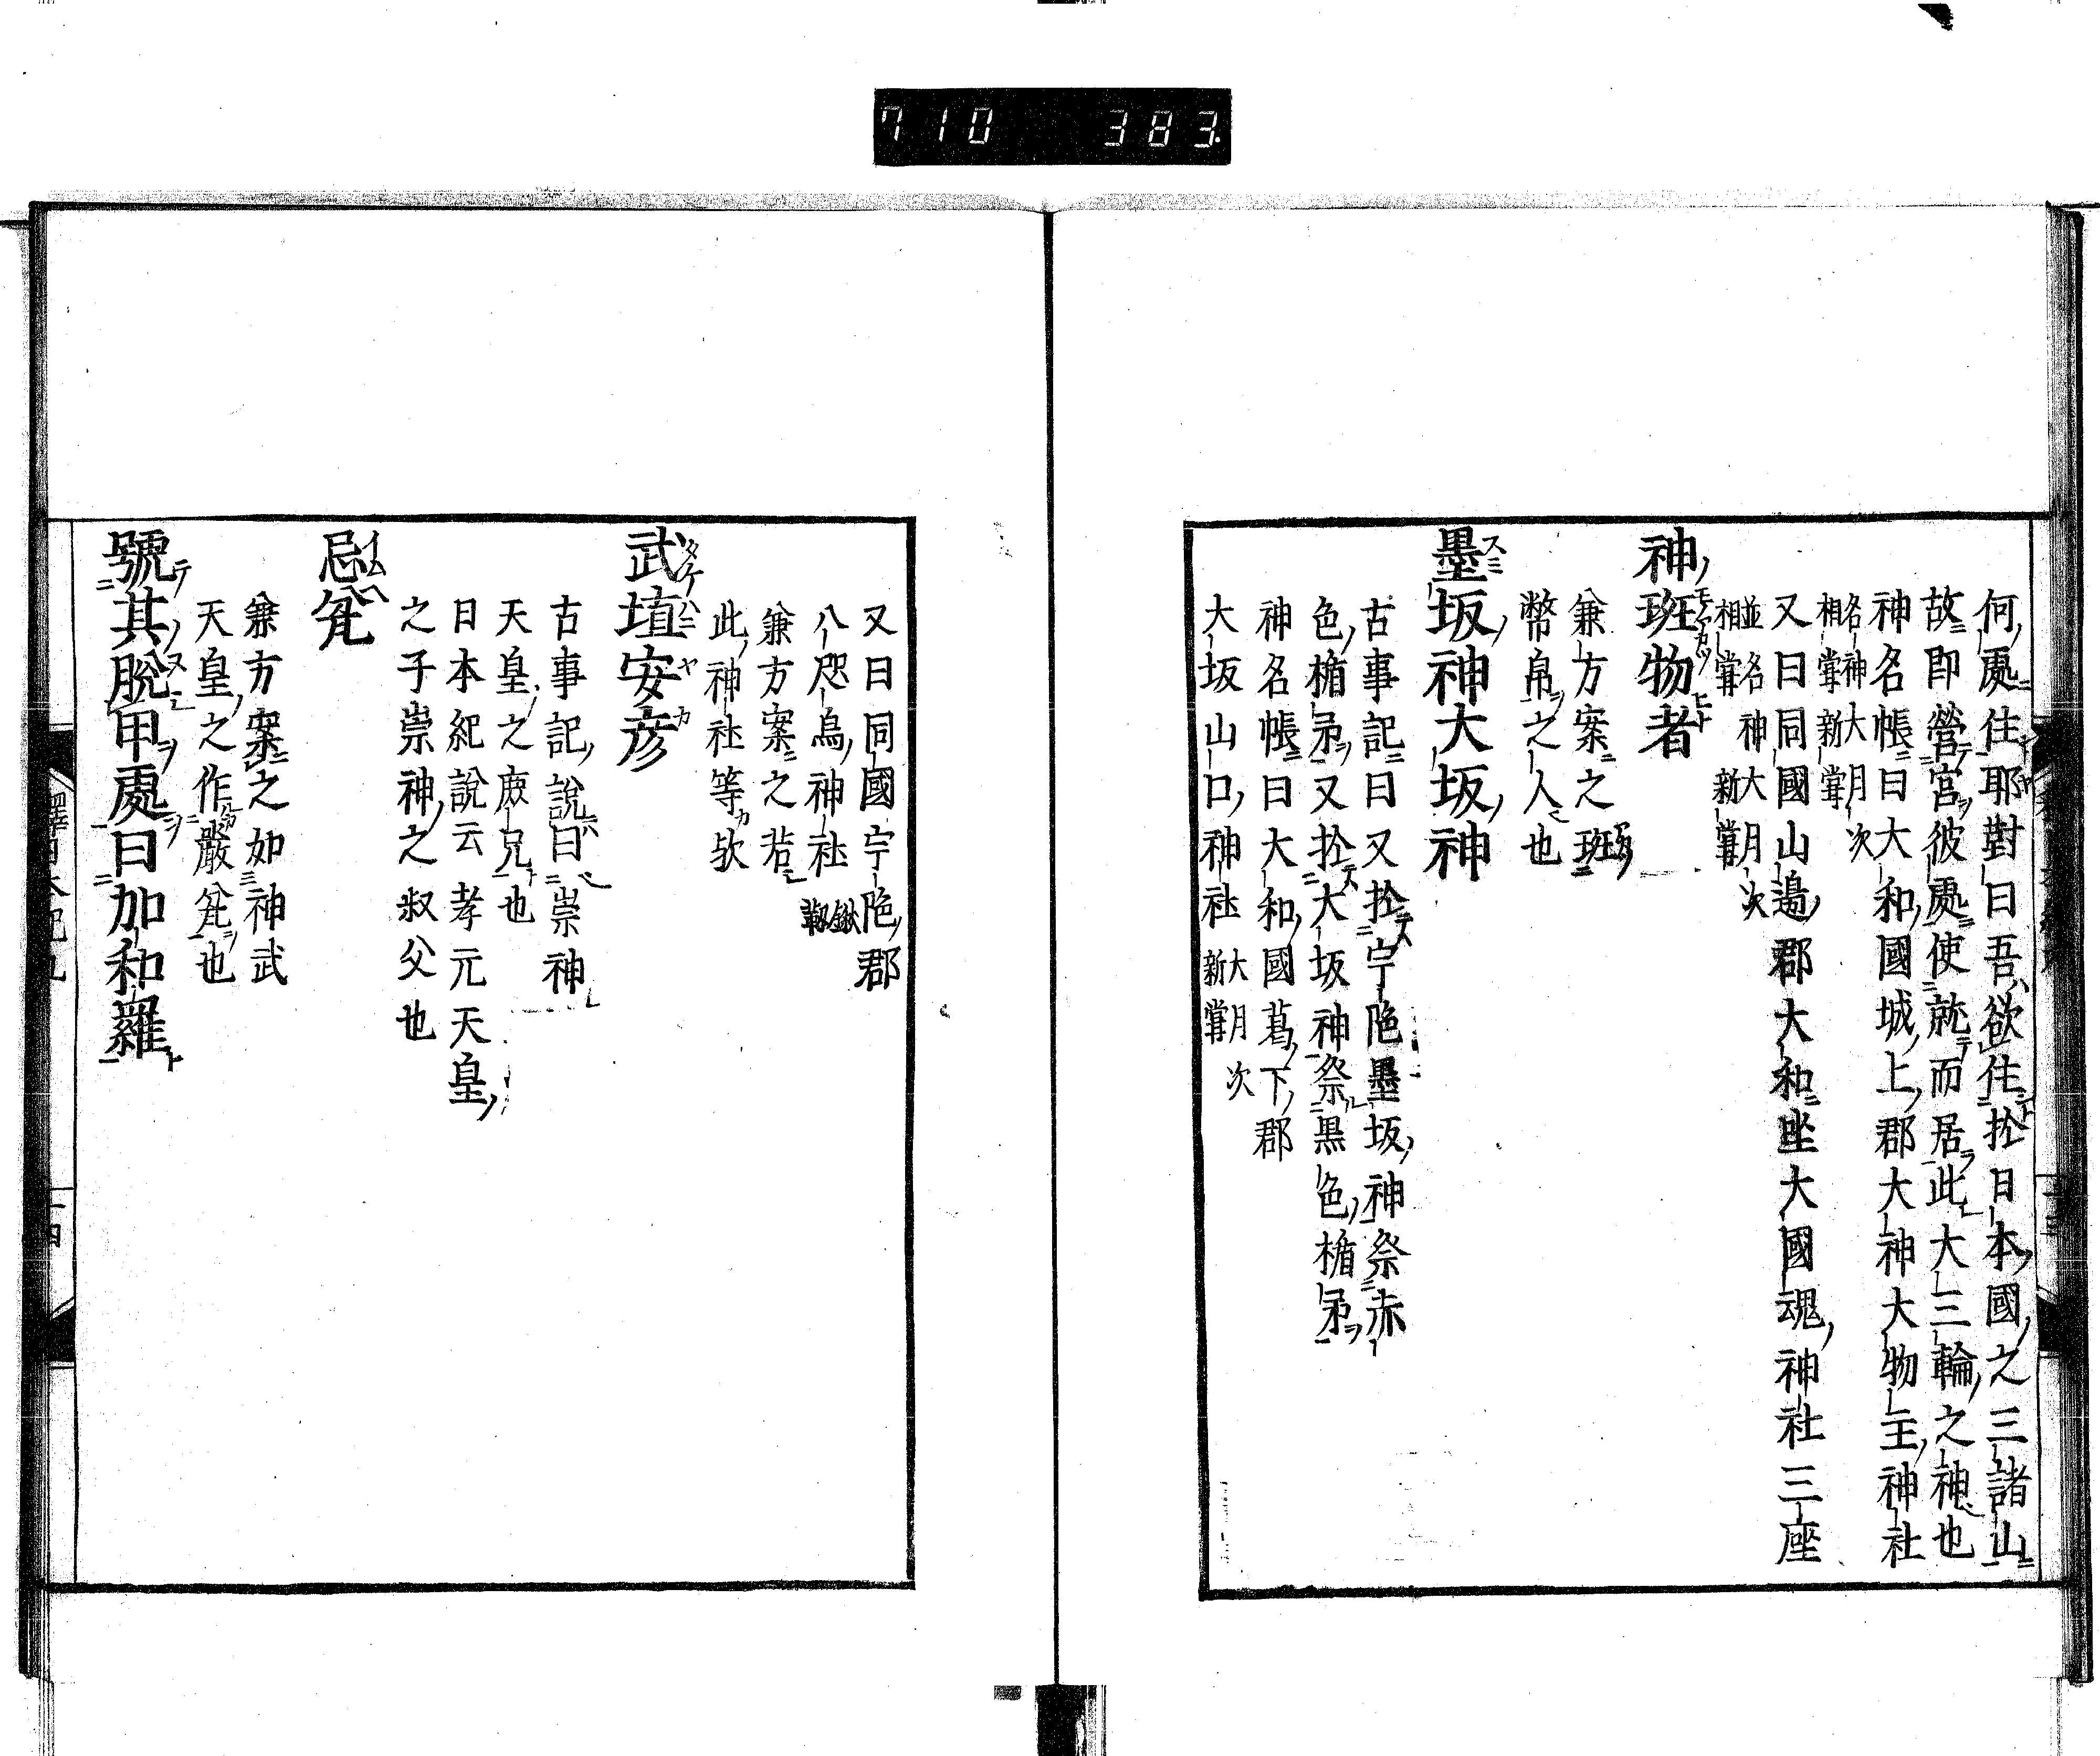 710 383.
何處住耶對曰吾欲住於日本國之三諸山
故即營宮彼處使就而居此大三輪之神也
神名帳曰大和國城上郡大神大物主神社
名神大月次
相嘗新嘗
又曰同國山邉郡大和坐大國魂神社三座
並名神大月次
相嘗新嘗
神班物者
兼方案之班
幣帛之人也
墨坂神大坂神
古事記曰又於宇陁墨坂神祭赤
色楯矛又於大坂神祭黒色楯矛
神名帳曰大和國葛下郡
大坂山口神社 大月次
新嘗
又曰同國宇陁郡
八咫烏神社 鍬
靫
兼方案之若
此神社等欤
武埴安彦
古事記說曰崇神
天皇之庶兄也
日本紀說云孝元天皇
之子崇神之叔父也
忌瓮
兼方案之如神武
天皇之作嚴瓮也
號其脫甲處曰加和羅